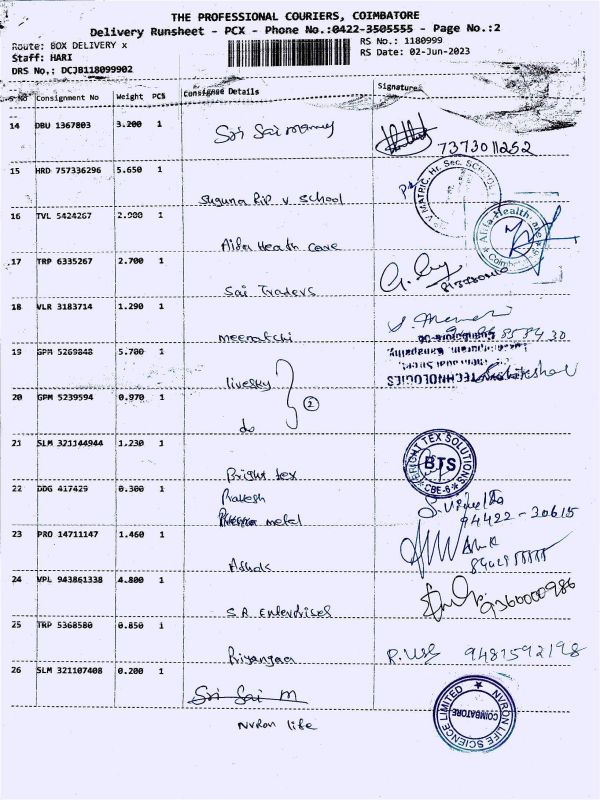 THE PROFESSIONAL COURIERS, COIMBATORE
Delivery Runsheet - PCX - Phone No.:0422-3505555 - Page No.:2
Route: BOX DELIVERY x
RS No.: 1180999
Staff: HARI
RS Date: 02-Jun-2023
DRS No.: DCJB118099902
S.No Consignment No Weight PCS Consignee Details Signature
14 DBU 1367803 3.200 1 Sri Sai 7373011252
15 HRD 757336296 5.650 1
V MATRIC. Hr. Sec. SCHOOL
Suguna Rip v School
16 TVL 5424267 2.900 1
Aida Health Care
17 TRP 6335267 2.700 1
Sai Traders
18 VLR 3183714 1.290 1
meenatchi
19 GPM 5269848 5.700 1
TECHNOLOGIES
livesky
20 GPM 5239594 0.970 1
2
do
21 SLM 321144944 1.230 1
BRIGHT TEX SOLUTIONS
BTS
CBE-6
Bright tex
22 DDG 417429 0.300 1 Prakash
metal
94422-30615
23 PRO 14711147 1.460 1
Ashok
24 VPL 943861338 4.800 1
9360000986
S.R. Enterprises
25 TRP 5368580 0.850 1
Priyangaa
9481592198
26 SLM 321107408 0.200 1 Sri Sai M
NVRON LIFE SCIENCE LIMITED
COIMBATORE
NVRon life